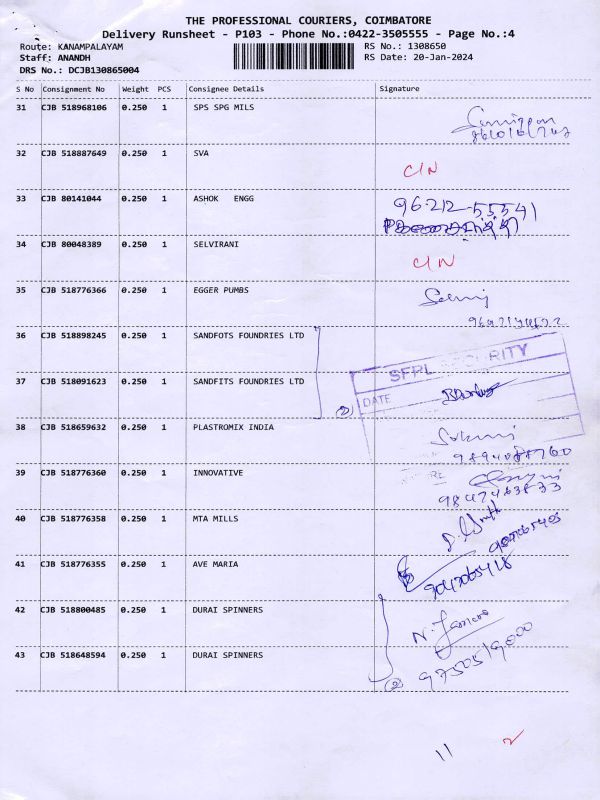 THE PROFESSIONAL COURIERS, COIMBATORE
Delivery Runsheet - P103 - Phone No.:0422-3505555 - Page No.:4
Route: KANAMPALAYAM RS No.: 1308650
Staff: ANANDH RS Date: 20-Jan-2024
DRS No.: DCJB130865004
S No Consignment No Weight PCS Consignee Details Signature
31 CJB 518968106 0.250 1 SPS SPG MILS
32 CJB 518887649 0.250 1 SVA C/N
33 CJB 80141044 0.250 1 ASHOK ENGG 96-212-55541
34 CJB 80048389 0.250 1 SELVIRANI C/N
35 CJB 518776366 0.250 1 EGGER PUMBS
36 CJB 518898245 0.250 1 SANDFOTS FOUNDRIES LTD
SFPL SECURITY
37 CJB 518091623 0.250 1 SANDFITS FOUNDRIES LTD (2) DATE
38 CJB 518659632 0.250 1 PLASTROMIX INDIA
39 CJB 518776360 0.250 1 INNOVATIVE
9847463833
40 CJB 518776358 0.250 1 MTA MILLS
41 CJB 518776355 0.250 1 AVE MARIA
42 CJB 518800485 0.250 1 DURAI SPINNERS
43 CJB 518648594 0.250 1 DURAI SPINNERS (2) 9750519000
11 2